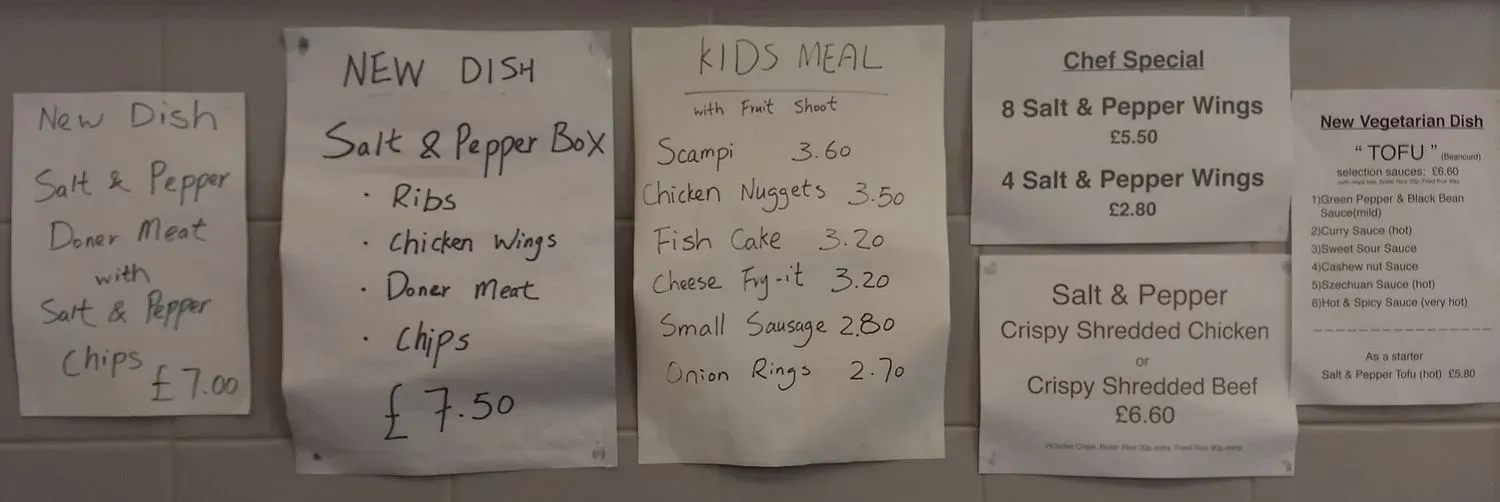 New Dish
Salt & Pepper
Doner Meat
with
Salt & Pepper
Chips
£7.00
NEW DISH
Salt & Pepper Box
· Ribs
· Chicken Wings
· Doner Meat
· Chips
£7.50
KIDS MEAL
with Fruit Shoot
Scampi 3.60
Chicken Nuggets 3.50
Fish Cake 3.20
Cheese Fry-it 3.20
Small Sausage 2.80
Onion Rings 2.70
Chef Special
8 Salt & Pepper Wings
£5.50
4 Salt & Pepper Wings
£2.80
Salt & Pepper
Crispy Shredded Chicken
or
Crispy Shredded Beef
£6.60
Includes Chips, Boiled Rice 20p extra, Fried Rice 90p extra
New Vegetarian Dish
" TOFU " (Beancurd)
selection sauces: £6.60
1)Green Pepper & Black Bean
Sauce(mild)
2)Curry Sauce (hot)
3)Sweet Sour Sauce
4)Cashew nut Sauce
5)Szechuan Sauce (hot)
6)Hot & Spicy Sauce (very hot)
As a starter
Salt & Pepper Tofu (hot) £5.80